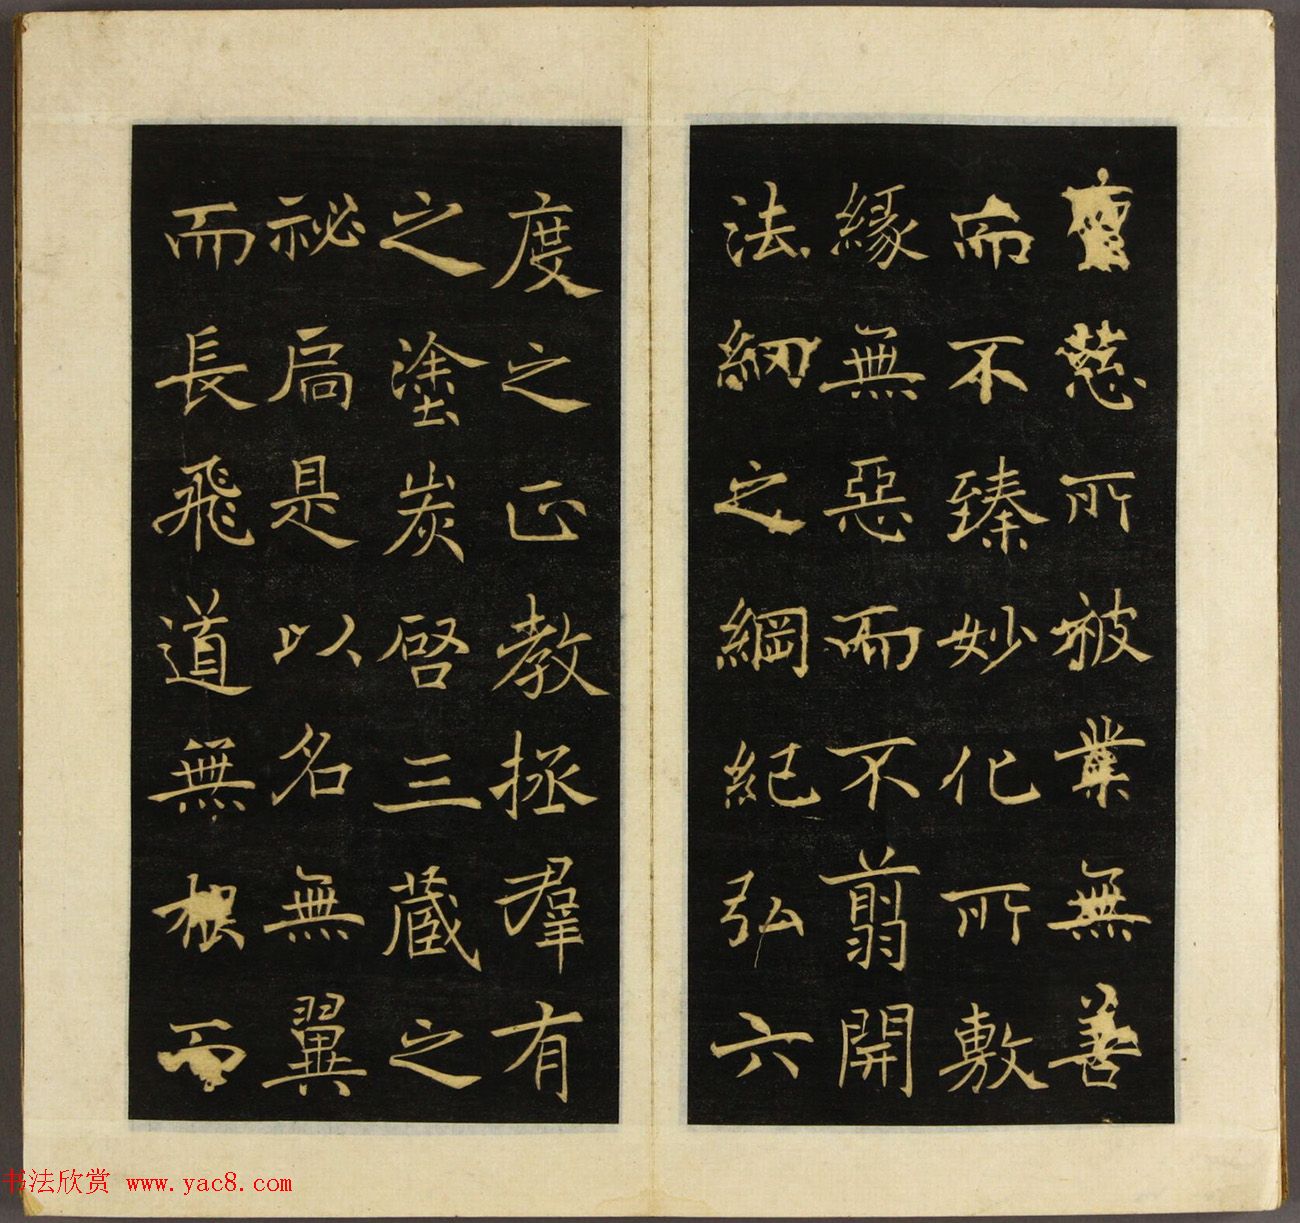 慈所被業無善
而不臻妙化所敷
緣無惡而不翦開
法網之綱紀弘六
度之正教拯羣有
之塗炭啓三藏之
祕扃是以名無翼
而長飛道無根而
书法欣赏 www.yac8.com